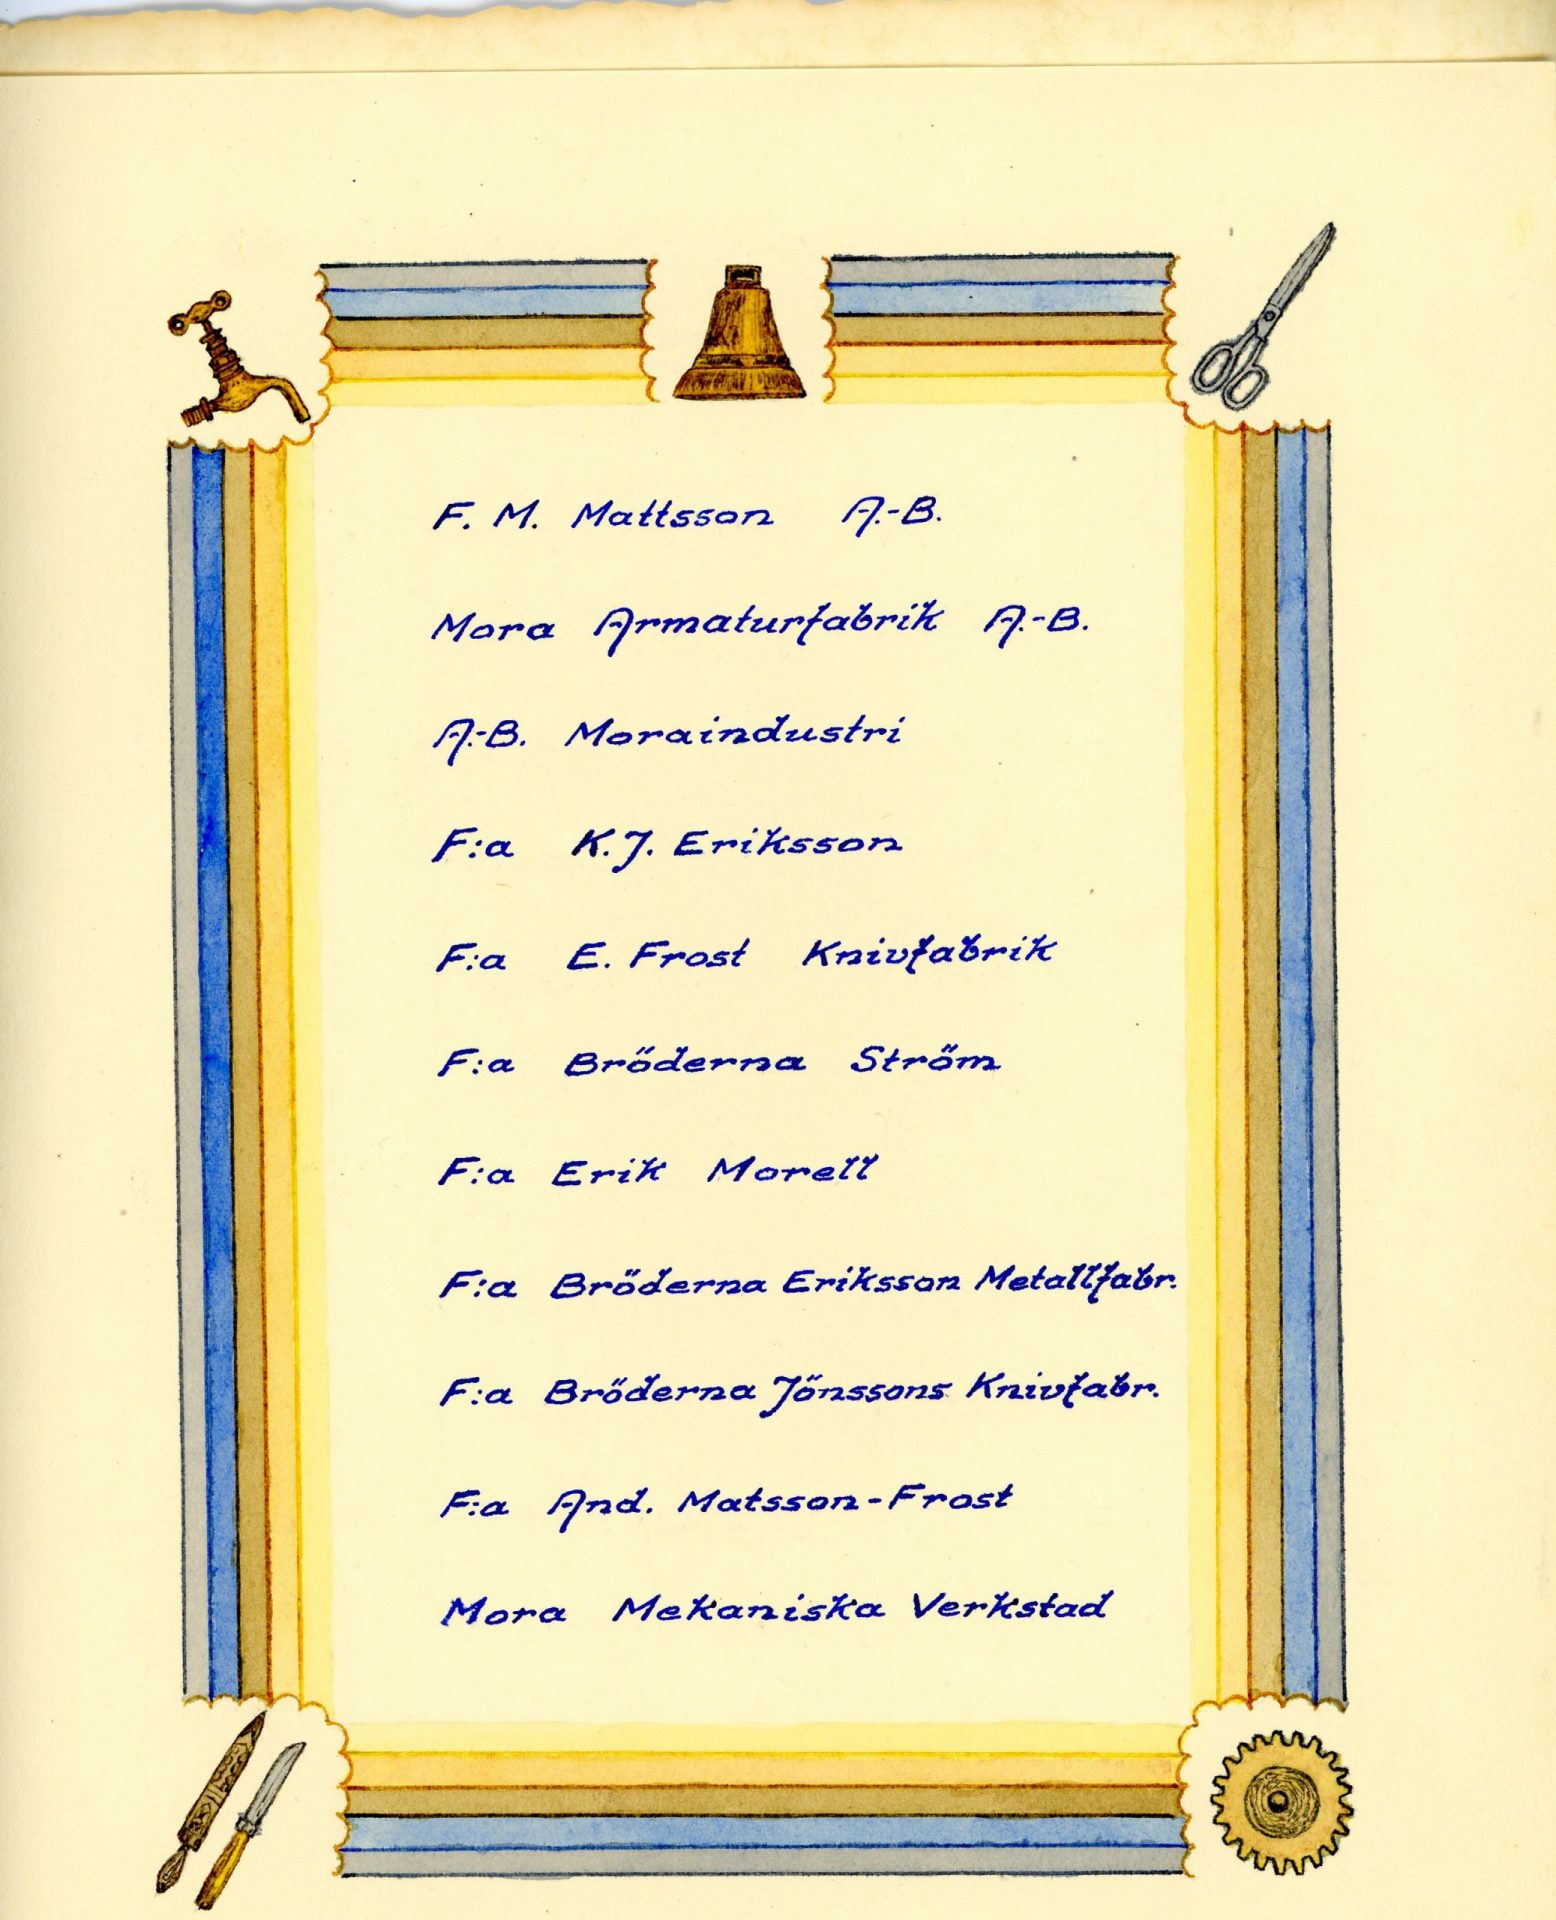 F. M. Mattsson A.-B.
Mora Armaturfabrik A.-B.
A.-B. Moraindustri
F:a K.J. Eriksson
F:a E. Frost Knivfabrik
F:a Bröderna Ström
F:a Erik Morell
F:a Bröderna Eriksson Metallfabr.
F:a Bröderna Jönssons Knivfabr.
F:a And. Matsson-Frost
Mora Mekaniska Verkstad